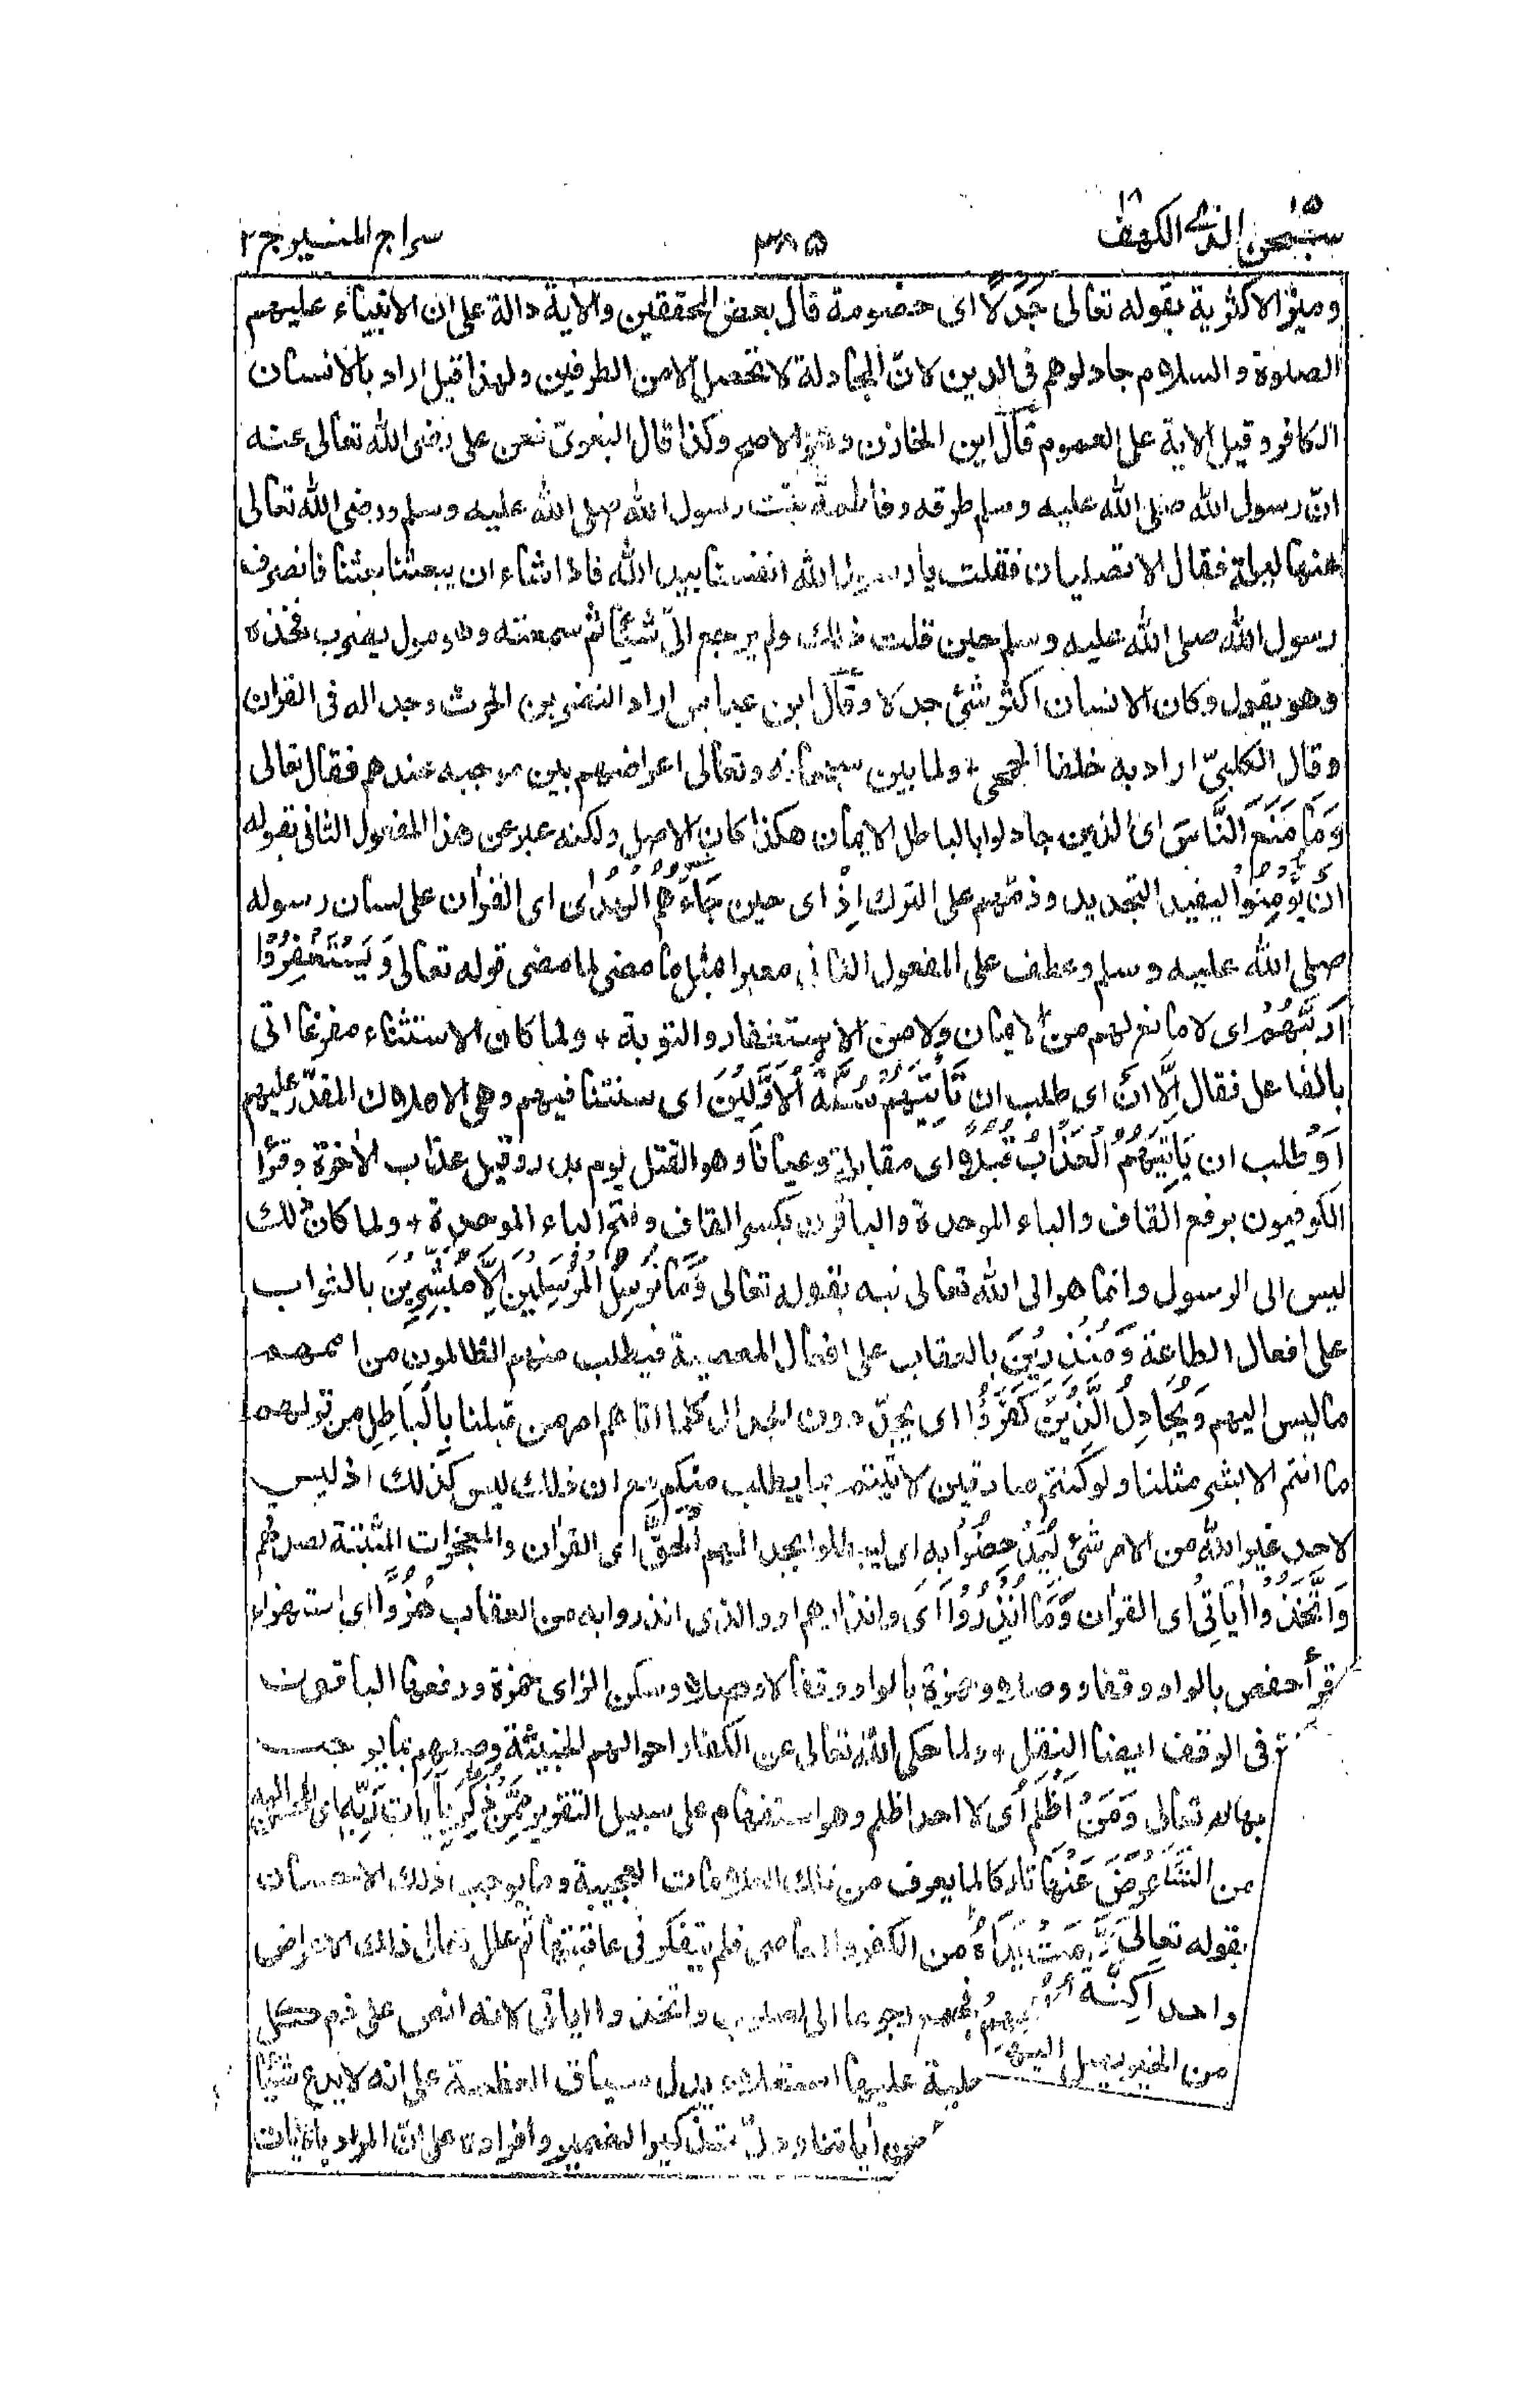 سبحن الذي ١٥ الكهف ١٨
٣٨٥
سراج المنير ج ٢
وميز الاكثرية بقوله تعالى جَدَلًا اى خصومة قال بعض المحققين والاية دالة على ان الانبياء عليهم
الصلوة والسلام جادلوهم فى الدين لانّ المجادلة لا تحصل الا من الطرفين ولهذا قيل اراد بالانسان
الكافر وقيل الاية على العموم قال ابن الخازن وهو الاصح وكذا قال البغوىّ فعن على رضى الله تعالى عنه
انّ رسول الله صلى الله عليه وسلم طرقه وفاطمة بنت رسول الله صلى الله عليه وسلم ورضى الله تعالى
عنها ليلة فقال الا تصليان فقلت يا رسول الله انفسنا بيد الله فاذا شاء ان يبعثنا بعثنا فانصرف
رسول الله صلى الله عليه وسلم حين قلت ذلك ولم يرجع الىّ شيئا ثم سمعته وهو مول يضرب فخذه
وهو يقول وكان الانسان اكثر شئ جدلا وقال ابن عباس اراد النضر بن الحرث وجداله فى القران
وقال الكلبىّ اراد به خلفا الجمحى + ولما بين سبحانه وتعالى اعراضهم بين موجبه عندهم فقال تعالى
وَمَا مَنَعَ النَّاسَ اى الذين جادلوا بالباطل الايمان هكذا كان الاصل ولكنه عبر عن هذا المفعول الثانى بقوله
اَنْ يُّؤْمِنُوْا ليفيد التجديد وذمّهم على الترك اِذْ اى حين جَاءَهُمُ الْهُدٰى اى القرأن على لسان رسوله
صلى الله عليه وسلم وعطف على المفعول الثانى معبرا مثل ما مضى لما مضى قوله تعالى وَيَسْتَغْفِرُوْا
رَبَّهُمْ اى لا مانع لهم من الايمان ولا من الاستغفار والتوبة + ولما كان الاستثناء مفرغا اتى
بالفاعل فقال اِلَّا اَنْ اى طلب ان تَأْتِيَهُمْ سُنَّةُ الْاَوَّلِيْنَ اى سنتنا فيهم وهى الاهلاك المقدّر عليهم
اَوْ طلب ان يَاْتِيَهُمُ الْعَذَابُ قُبُلًا اى مقابلة وعيانا وهو القتل يوم بدر وقيل عذاب الأخرة وقرأ
الكوفيون برفع القاف والباء الموحدة والباقون بكسر القاف وفتح الباء الموحدة + ولما كان ذلك
ليس الى الرسول وانما هو الى الله تعالى نبه بقوله تعالى وَمَا نُرْسِلُ الْمُرْسَلِيْنَ اِلَّا مُبَشِّرِيْنَ بالثواب
على افعال الطاعة وَمُنْذِرِيْنَ بالعقاب على افعال المعصية فيطلب منهم الظالمون من اممهم
ما ليس اليهم وَيُجَادِلُ الَّذِيْنَ كَفَرُوْا اى يجدّدون الجدال كلما اتاهم امر من قبلنا بِالْبَاطِلِ من قولهم
ما انتم الا بشر مثلنا ولو كنتم صادقين لاتيتم بما يطلب منكم مع ان ذلك ليس كذلك اذ ليس
لاحد غير الله من الامر شئ لِيُدْحِضُوْا بِهِ اى ليبطلوا بجدالهم الْحَقَّ اى القرأن والمعجزات المثبتة لصدقهم
وَاتَّخَذُوْا اٰيَاتِىْ اى القرأن وَمَا اُنْذِرُوْا اى وانذارهم او والذى انذروا به من العقاب هُزُوًا اى استهزاء
قرأ حفص بالواو وقفا ووصلا وحمزة بالواو وقفا لا وصلا وسكن الزاى حمزة ورفعها الباقون
فى الوقف ايضا النقل + ولما حكى الله تعالى عن الكفار احوالهم الخبيثة وصفهم بما يوجب
قوله تعالى وَمَنْ اَظْلَمُ اى لا احد اظلم وهو استفهام على سبيل التقرير مِمَّنْ ذُكِّرَ بِاٰيَاتِ رَبِّهٖ اى المحسن اليه
فَاَعْرَضَ عَنْهَا تاركا لما يعرف من تلك العلامات العجيبة وما يوجب ذلك الاحسان
بقوله تعالى مَا قَدَّمَتْ يَدَاهُ من الكفر والمعاصى فلم يتفكر فى عاقبتها ثم علل تعالى ذلك الاعراض
واحد اَكِنَّةً رجوعا الى اسلوب واتخذوا اياتى لانه انص على ذم كل
من الخير يصل اليها علية عليها استعلاء يدل سياق العظمة على انه لا يدع شيئا
اياتنا ودلّ بتذكير الضمير وافراده على انّ المراد بالايات